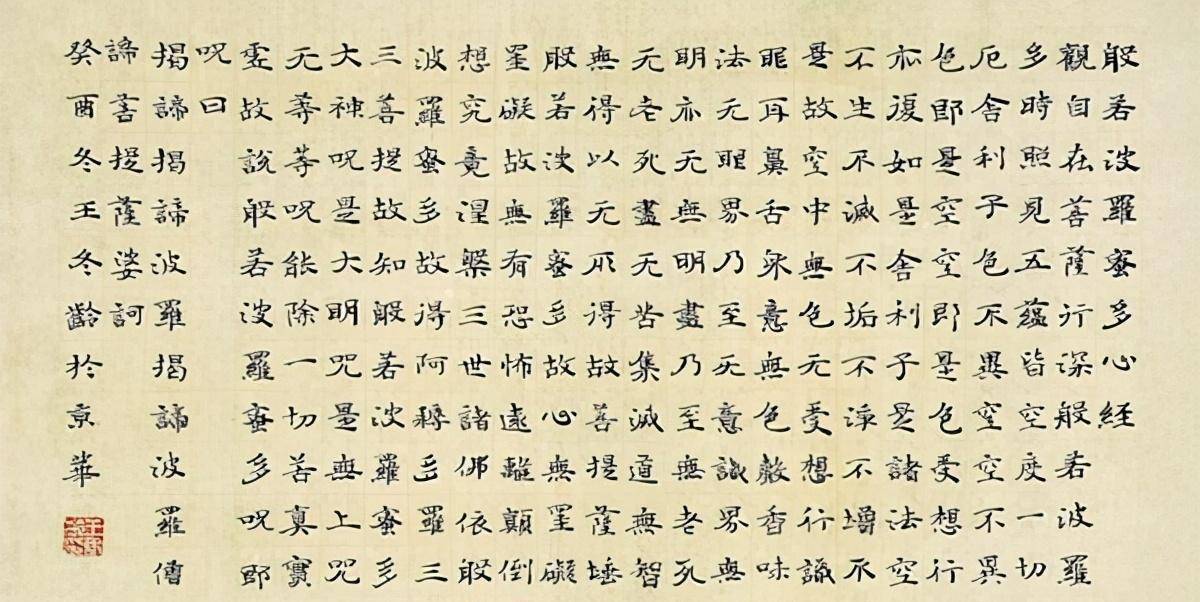 般若波羅蜜多心経
觀自在菩薩行深般若波羅
多時照見五蘊皆空度一切
厄舍利子色不異空空不異
色即是空空即是色受想行
亦復如是舍利子是諸法空
不生不滅不垢不淨不增不
是故空中無色无受想行識
眼耳鼻舌身意無色聲香味
法无眼界乃至无意識界無
明亦无無明盡乃至無老死
无老死盡无苦集滅道無智
無得以无所得故菩提薩埵
般若波羅蜜多故心無罣礙
罣礙故無有恐怖遠離顛倒
想究竟涅槃三世諸佛依般
波羅蜜多故得阿耨多羅三
三菩提故知般若波羅蜜多
大神咒是大明咒是無上咒
无等等咒能除一切苦真實
虛故說般若波羅蜜多咒即
呪曰
揭諦揭諦波羅揭諦波羅僧
諦菩提薩婆訶
癸酉冬王冬齡於京華